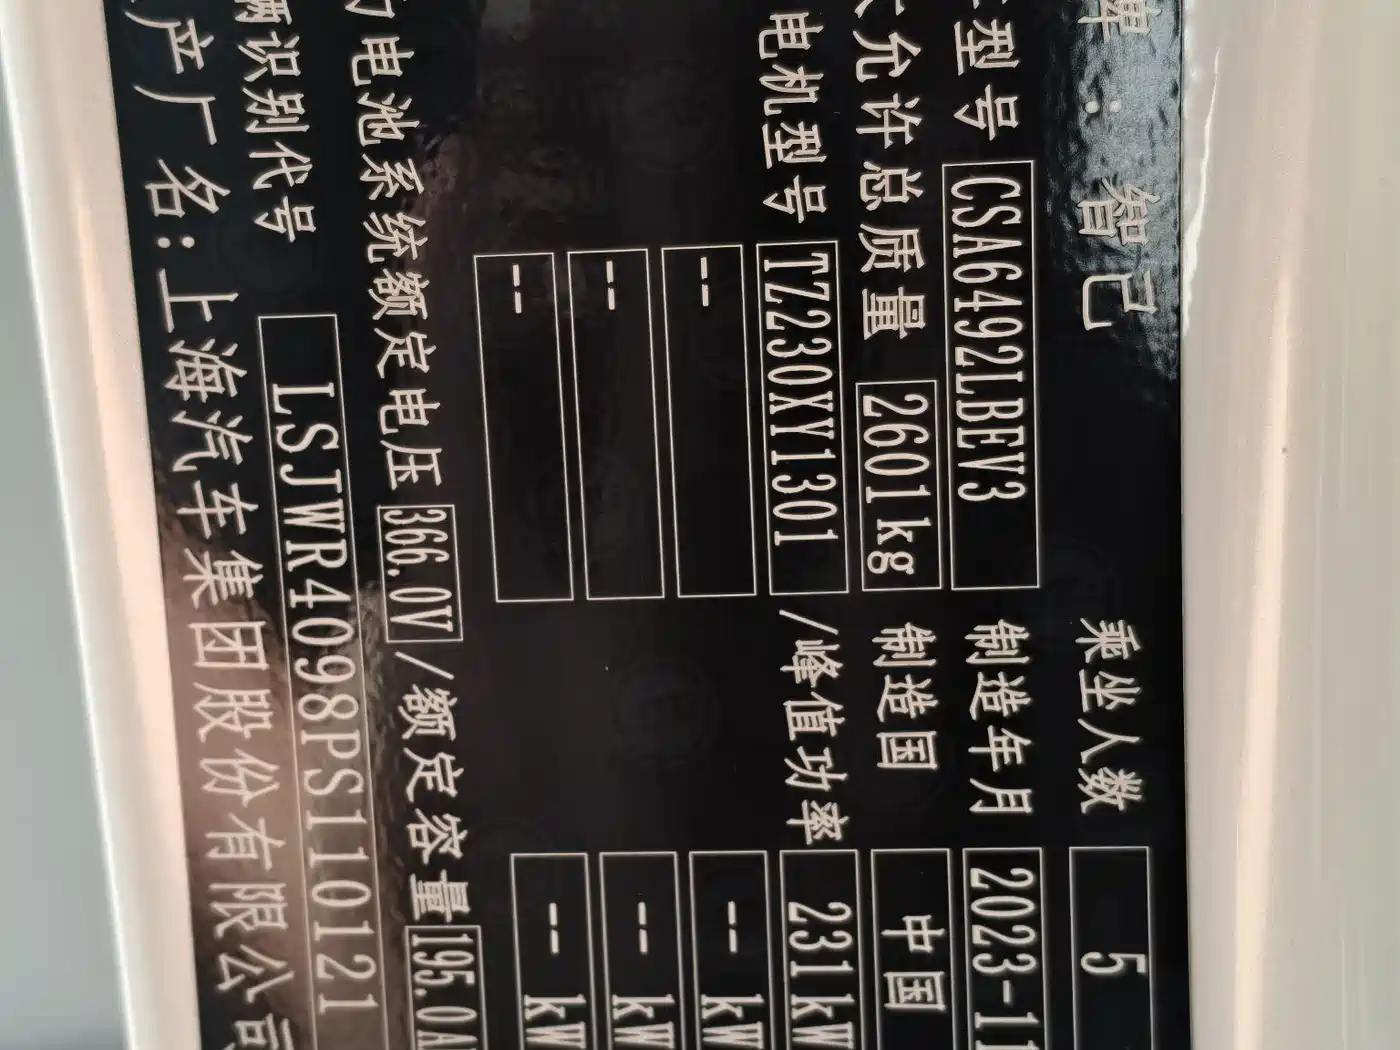 牌: 智己 乘坐人数 5
型号 CSA6492LBEV3 制造年月 2023-11
允许总质量 2601kg 制造国 中国
电机型号 TZ230XY1301 /峰值功率 231kW
-- -- kW
-- -- kW
-- -- kW
电池系统额定电压 366.0V /额定容量 195.0A
辆识别代号 LSJWR4098PS110121
产厂名:上海汽车集团股份有限公司